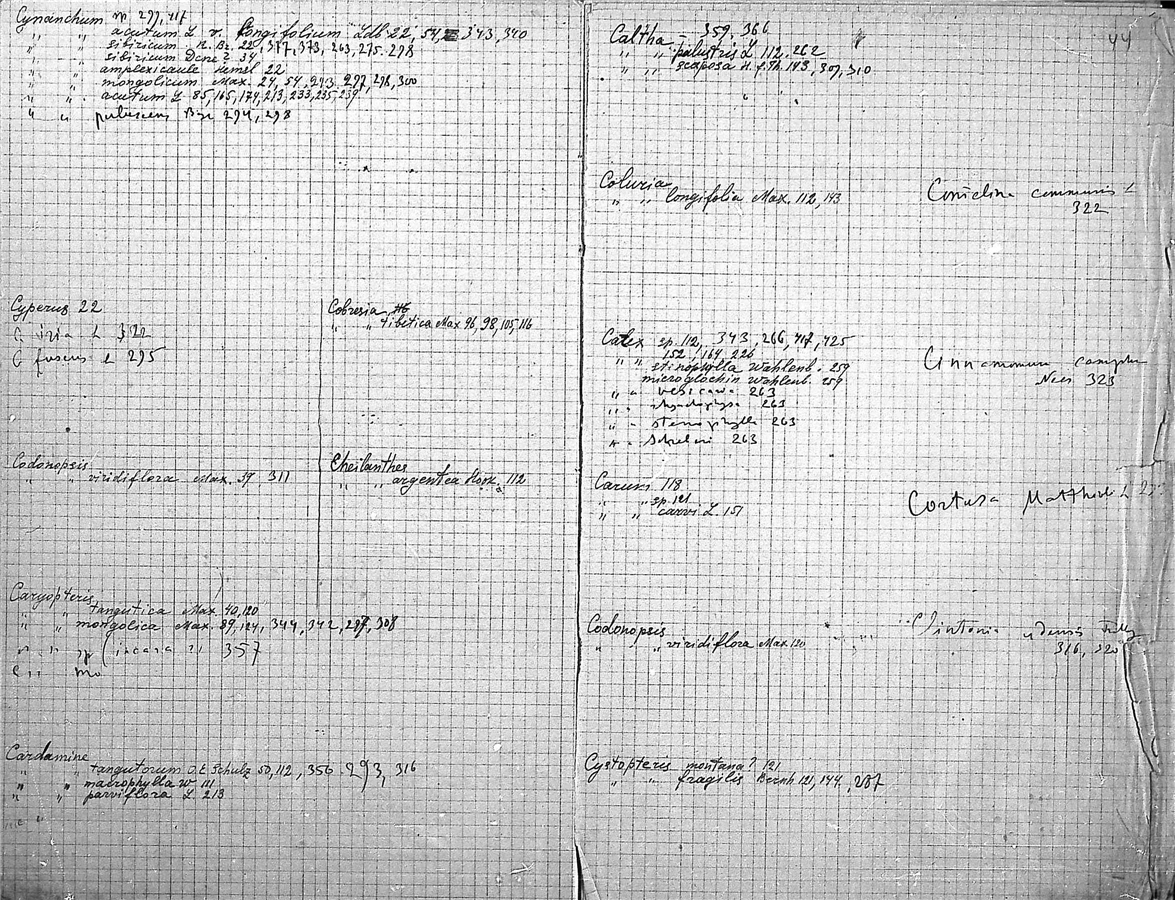 Cynanchum sp 297, 417
" " acutum L v. longifolium Ldb 22, 54, 343, 340
" " sibiricum R. Br. 22, 377, 373, 263, 275. 298
" " sibiricum Dcne ? 34
" " amplexicaule Hemsl 22
" " mongolicum Max. 24, 54, 293. 297, 298, 300
" " acutum L 85, 165, 174, 213, 233, 235, 239
" " pubescens Bge 294, 298
Cyperus 22
C. iria L 322
C fuscus L 295
Cobresia
" " tibetica Max 96, 98, 105, 116
Codonopsis
" " viridiflora Max. 39 311
Cheilanthes
" " argentea Hook. 112
Caryopteris
" " tangutica Max 40, 120
" " mongolica Max. 89, 124, 344, 342, 297, 308
" " sp (incana ?) 357
C " mo
Cardamine
" " tangutorum O.E Schulz 50, 112, 356. 293, 316
" " macrophylla W 111
" " parviflora L. 213
44
Caltha - 359, 366
" " palustris L 112, 262
" " scaposa H. f. Th. 143, 307, 310
Coluria
" " longifolia Max. 112, 143
communis L
322
Carex sp. 112, 343, 266, 417, 425
" " 152, 164, 226
stenophylla Wahlenb. 259
microglochin Wahlenb. 259
" " vesicaria 263
" " 263
" - stenophylla 263
" - 263
Cinnamomum
Nees 323
Carum 118
" " sp. 121
" " carvi L. 151
Cortusa Matthioli L
Codonopsis
" " viridiflora Max 120
Clintonia udensis
316, 320
Cystopteris montana? 121
" " fragilis Bernh 121, 144, 287